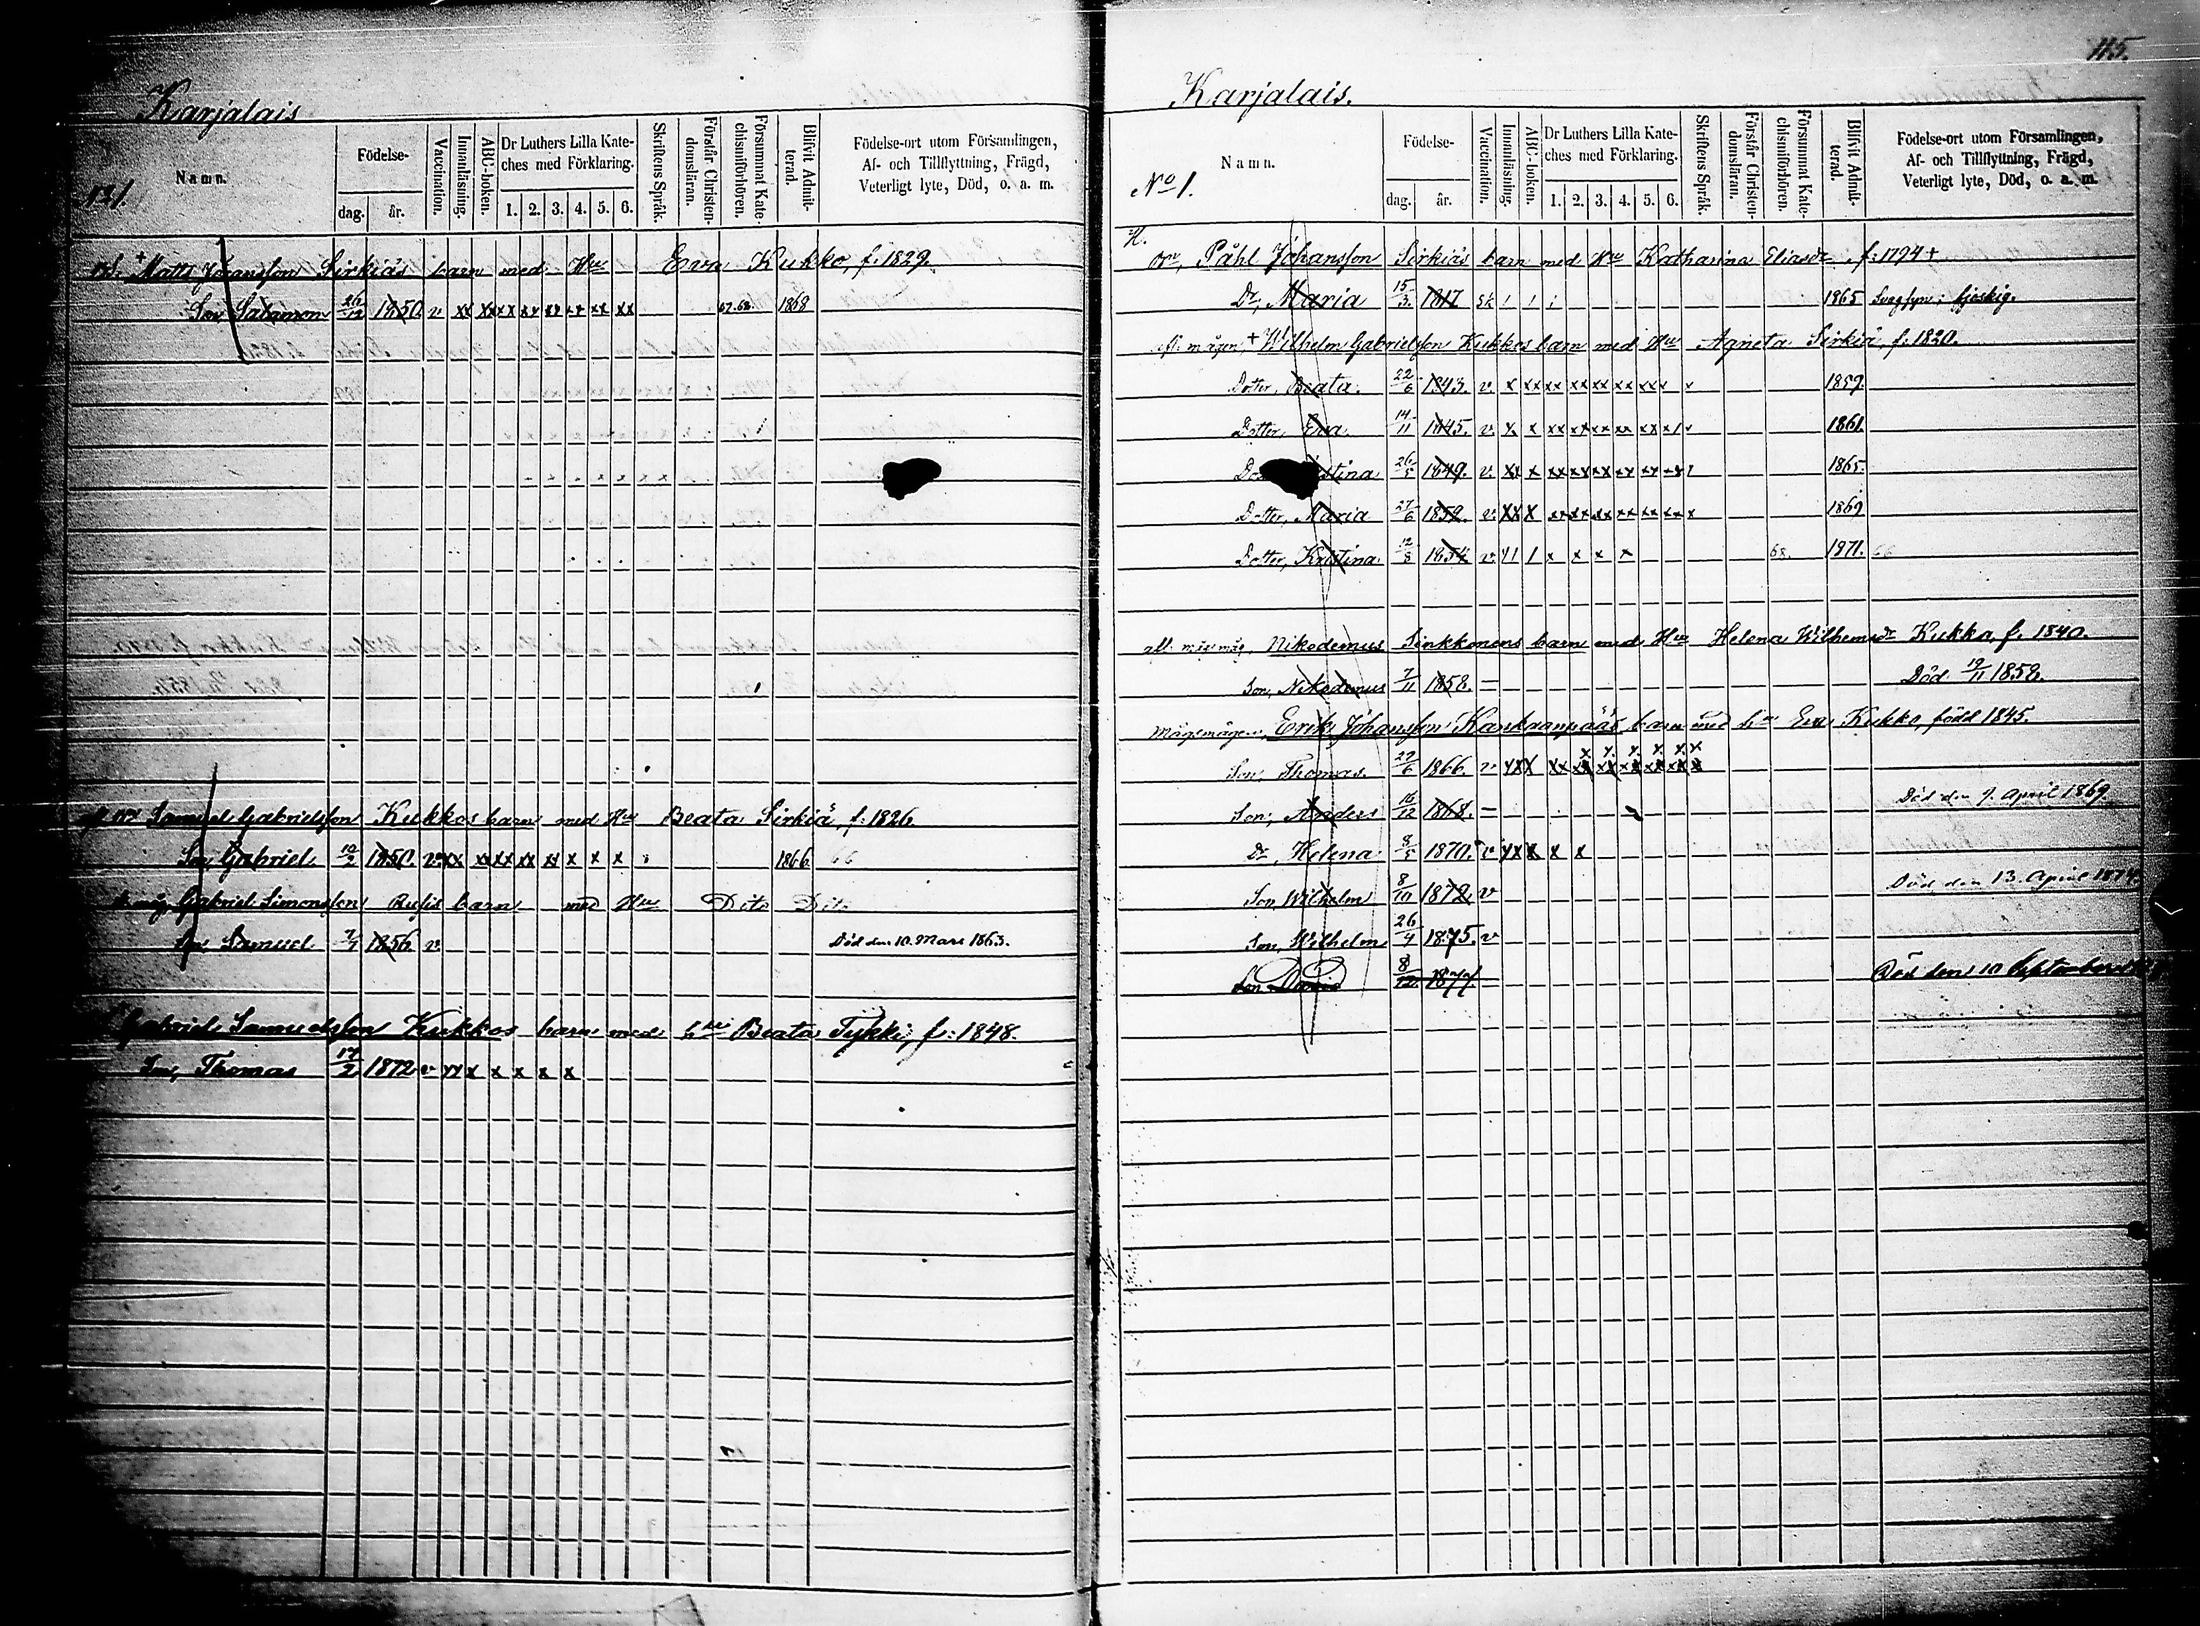 Karjalais
No 1.
Namn.
Födelse-
dag. år.
Vaccination.
Innanläsning.
ABC-boken.
Dr Luthers Lilla Kate-
ches med Förklaring.
1. 2. 3. 4. 5. 6.
Skriftens Språk.
Förstår Christen-
domsläran.
Försummat Kate-
chismiförhören.
Blifvit Admit-
terad.
Födelse-ort utom Församlingen,
Af- och Tillflyttning, Frägd,
Veterligt lyte, Död, o. a. m.
+ Matts Johansson Sirkiäs barn med Hu Eva Kukko, f. 1829.
Son Salamon 26/12 1850. v xx xx xx xx xx xx xx xx 67.68. 1868
Samuel Gabrielsson Kukkos barn med Hu Beata Sirkiä, f. 1826.
Son, Gabriel 10/2 1850. v xx xx xx xx xx x x x 1866. 66
Gabriel Simonsson barn med Hu Dito Dito
Samuel 1856 v. Död den 10. Mars 1863.
Gabriel Samuelsson Kukkos barn med hu Beata Tykki, f. 1848.
Son, Thomas 17/2 1872 v xx x x x x x
115.
Karjalais.
No 1.
Namn.
Födelse-
dag. år.
Vaccination.
Innanläsning.
ABC-boken.
Dr Luthers Lilla Kate-
ches med Förklaring.
1. 2. 3. 4. 5. 6.
Skriftens Språk.
Förstår Christen-
domsläran.
Försummat Kate-
chismiförhören.
Blifvit Admit-
terad.
Födelse-ort utom Församlingen,
Af- och Tillflyttning, Frägd,
Veterligt lyte, Död, o. a. m.
Påhl Johansson Sirkiäs barn med Hu Katharina Eliasdr f. 1794 +
Dr, Maria 15/3 1817 1865 Svagsyn;
mågen, + Wilhelm Gabrielsson Kukkos barn med Hu Agneta Sirkiä f. 1820.
Dotter, Beata. 22/6 1843. v. x xx xx xx xx xx xxx x 1859.
Dotter, Eva. 14/11 1845. v. x x xx xx xx xx xx x 1861
26/5 1849. v. xx x xx xx xx xx xx xx 1865.
Dotter, Maria 27/6 1852. v. xx x xx xx xx xx xx xx x 1869
Dotter, Kristina. 12/8 1854 v x x x x 68. 1871. 66
Nikodemus Sinkkonens barn med Hu Helena Wilhemsdr Kukko, f. 1840.
Son, Nikodemus 7/11 1858. – Död 19/11 1858.
Mågsmågen, Erik Johansson Kankaanpääs barn med hu Eva Kukko, född 1845.
x x. x. x. x. x
Son, Thomas. 29/6 1866. v xxx xx xx xx xx xx xx xx
Son, Anders 16/12 1868. – Död den 7. April 1869
Dr, Helena 8/5 1870. v xxx x x x
Son, Wilhelm 8/10 1872. v Död den 13. April 1874.
Son, Wilhelm 26/4 1875. v
Son, David 8/12 1877. Död den 10 September